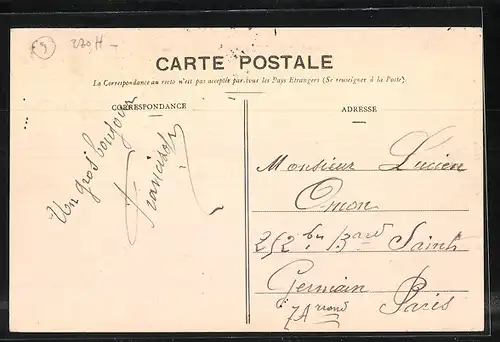 £9 270 H -
CARTE POSTALE
La Correspondance au recto n'est pas acceptée par tous les Pays Etrangers (Se renseigner à la Poste).
CORRESPONDANCE
Un gros bonjour
ADRESSE
Monsieur Lucien
Omon
252 bis Bard Saint
Germain
Paris
7 Arrond